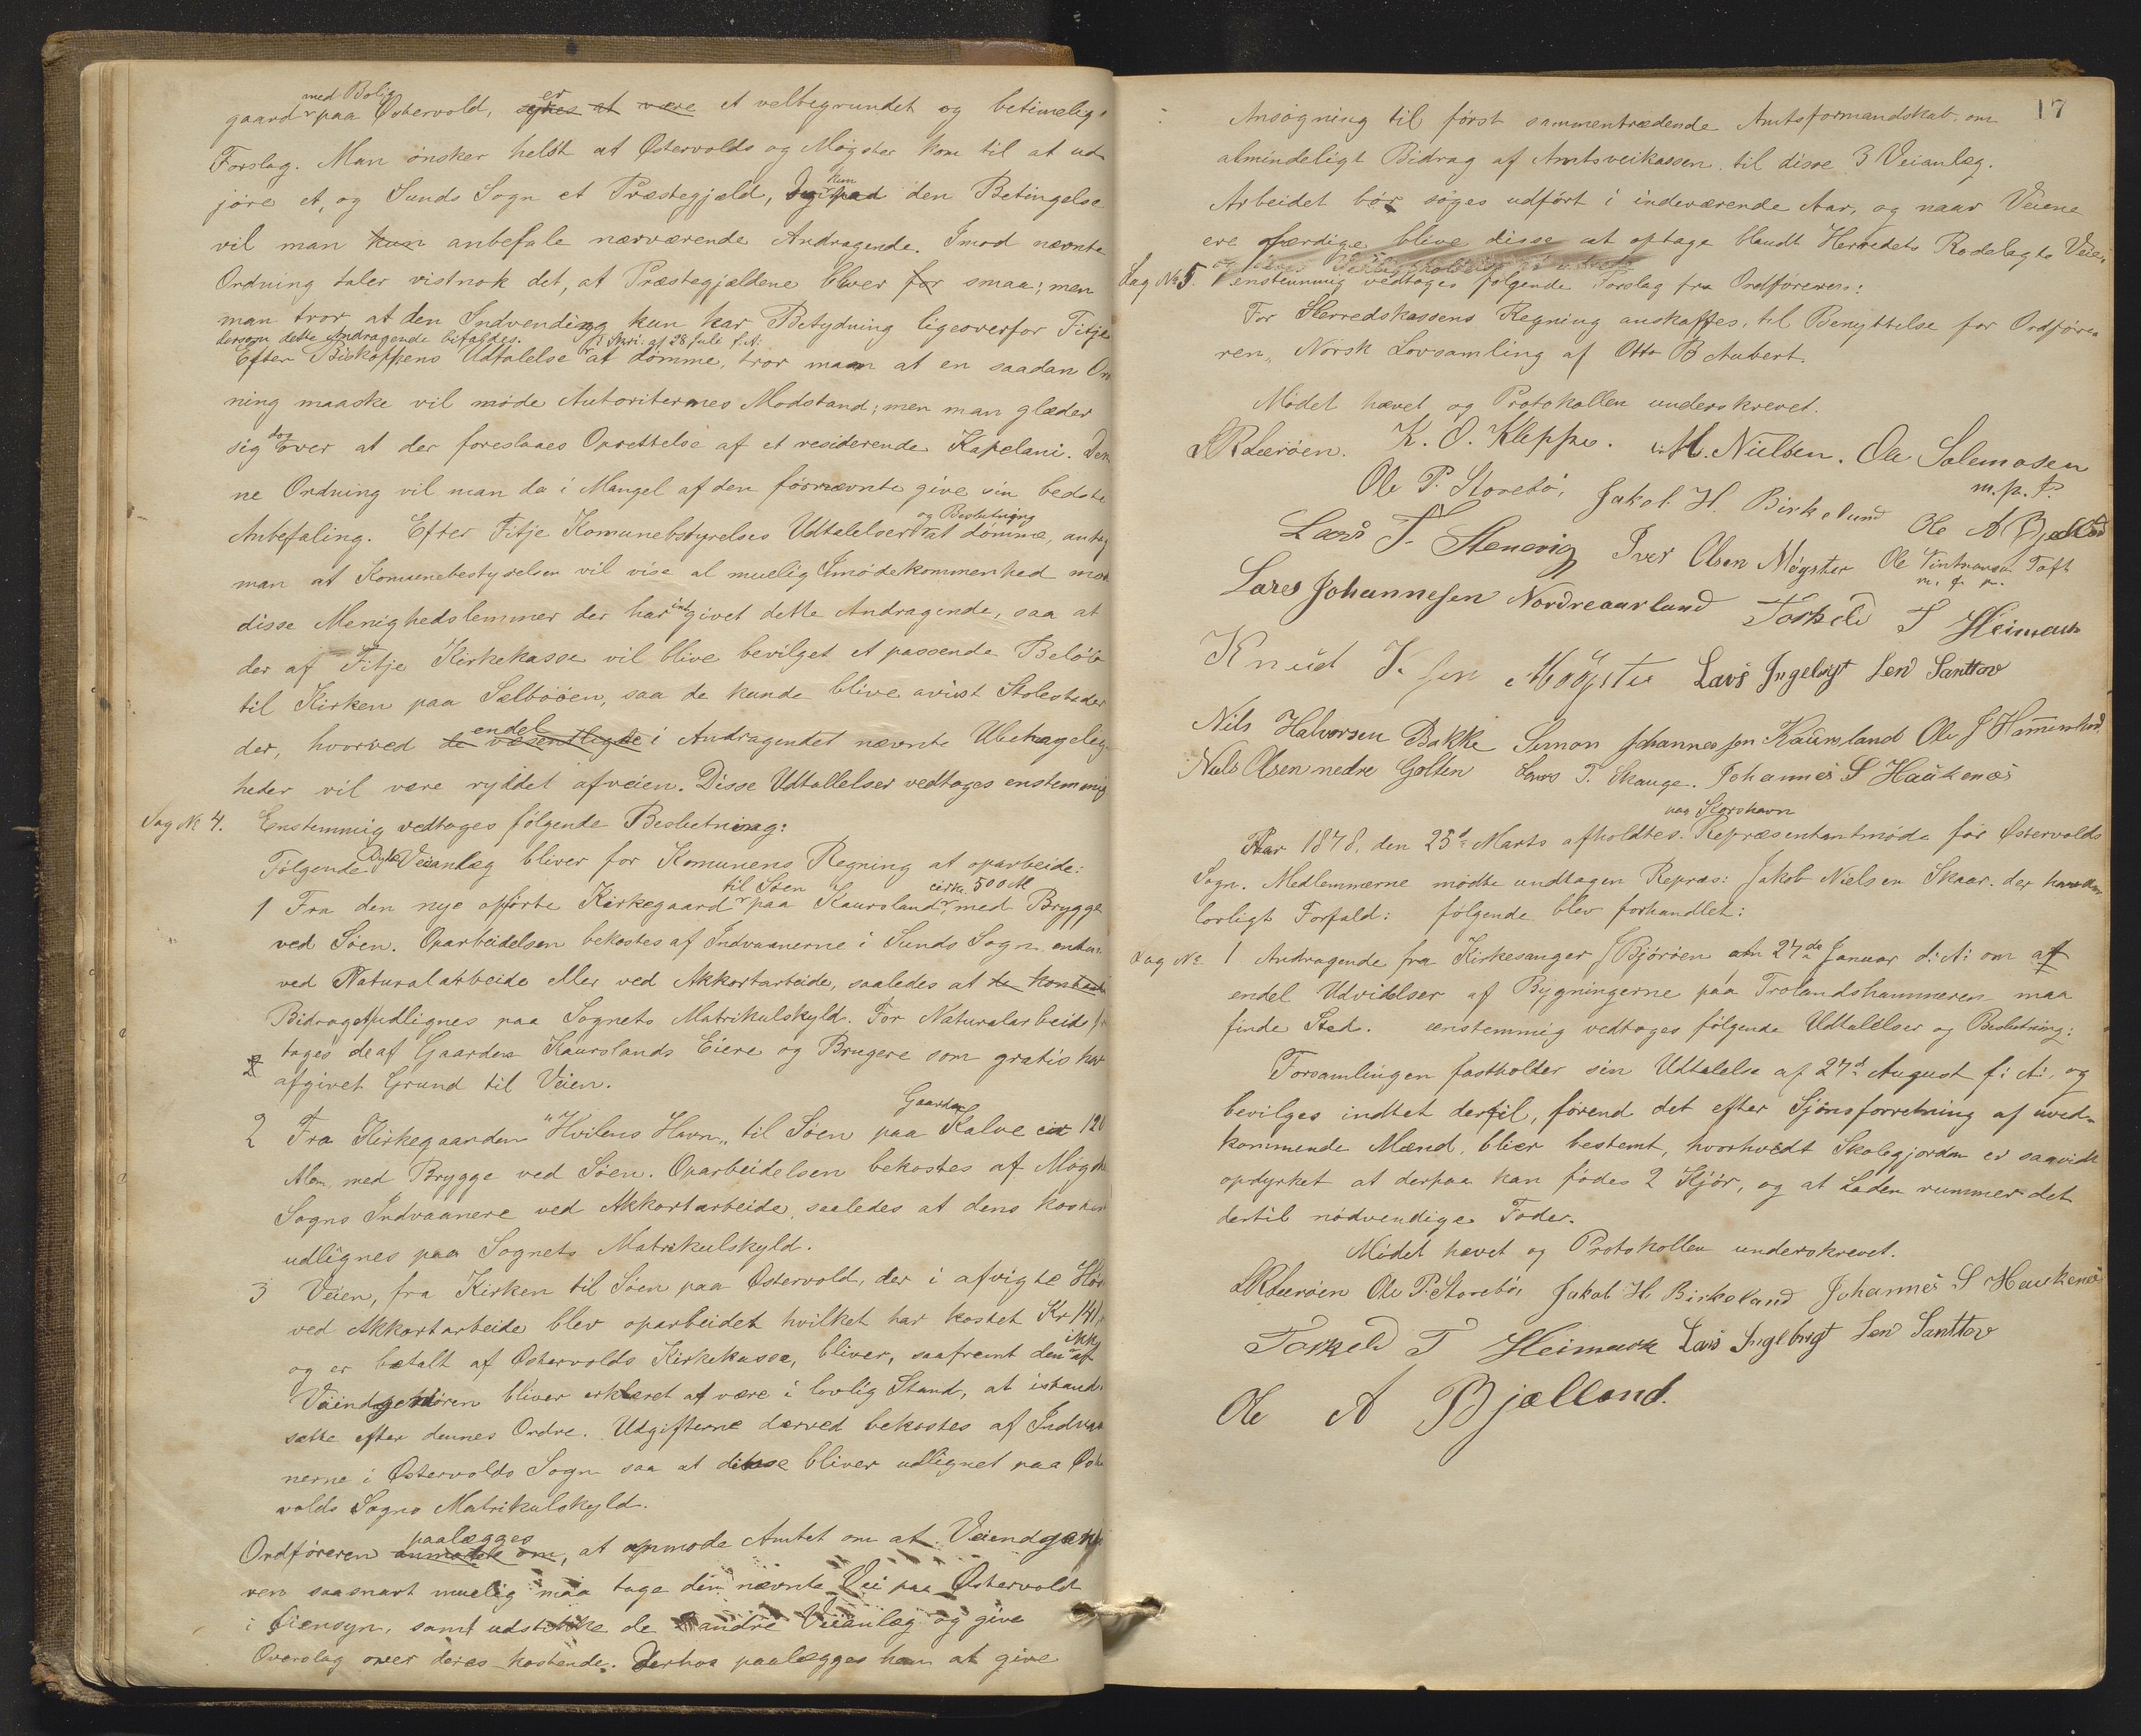 gaard med Bolig paa Østervold, synes at være er et velbegrundet og betimelig
Forslag. Man ønsker helst at Østervolds og Møgster kom til at ud
jøre et, og Sunds Sogn et Præstegjæld, kun paa den Betingelse
vil man kun anbefale nærværende Andragende. Imod nævnte
Ordning taler vistnok det, at Præstegjældene bliver for smaa; men
man tror at den Indvending kun har Betydning ligeoverfor Fitje
dersom dette Andragende bifaldes.
Efter Biskoppens Udtalelse i Skri. af 28 Juli f. A. at dømme, tror man at en saadan Ord
ning maaske vil møde Autoriternes Modstand; men man glæder
sig dog over at der foreslaaes Oprettelse af et residerende Kapelani. Den
ne Ordning vil man da i Mangel af den førnævnte give sin bedste
Anbefaling. Efter Fitje Komunebstyrelses Udtalelser og Beslutning at dømme, antag
man at Komunebestyrelsen vil vise al muelig Imødekommenhed mod
disse Menighedslemmer der har indgivet dette Andragende, saa at
der af Fitje Kirkekasse vil blive bevilget et passende Beløb
til Kirken paa Sælbøöen, saa de kunde blive anvist Stolestader
der, hvorved de væsentligste endel i Andragendet nævnte Ubehagelig
heder vil være ryddet afveien. Disse Udtallelser vedtages enstemmig
Sag № 4. Enstemmig vedtoges følgende Beslutning:
Følgende Bygde Veianlæg bliver for Komunens Regning at oparbeide:
1 Fra den nye opførte Kirkegaard til Søen paa Kausland cirka 500 Al, med Brygge
ved Søen. Oparbeidelsen bekostes af Indvaanerne i Sunds Sogn enten
ved Naturalarbeide eller ved Akkortarbeide, saaledes at de kontante
Bidraget udlignes paa Sognets Matrikulskyld. For Naturalarbeide fr
tages de af Gaarden Kauslands Eiere og Brugere som gratis har
afgivet Grund til Veien.
2 Fra Kirkegaarden "Hvilens Havn„ til Søen paa Gaarden Kalve cir 120
Alen, med Brygge ved Søen. Oparbeidelsen bekostes af Møgster
Sogns Indvaanere ved Akkortarbeide, saaledes at dens kostende
udlignes paa Sognets Matrikulskyld.
3 Veien, fra Kirken til Søen paa Østervold, der i afvigte Høst
ved Akkortarbeide blev oparbeidet hvilket har kostet Kr 141,
og er betalt af Østervolds Kirkekasse, bliver, saafremt den ikke af
Veindgeniøren bliver erklæret at være i lovlig Stand, at istand
sætte efter dennes Ordre. Udgifterne derved bekostes af Indvaa
nerne i Østervolds Sogn saa at disse bliver udlignet paa Øster
volds Sogns Matrikulskyld.
Ordføreren anmodede om paalægges, at anmode Amtet om at Veiendgeniø
ren saasnart muelig maa tage den nævnte Vei paa Østervold
i Øiensyn, samt udstikke de andre Veianlæg og give
Overslag over deres kostende. Derhos paalægges ham at give
17
Ansøgning til først sammentrædende Amtsformandskab om
almindeligt Bidrag af Amtsveikassen til disse 3 Veianlæg.
Arbeidet bør søges udført i indeværende Aar, og naar Veiene
ere færdige blive disse at optage blandt Herredets Rodelagte Veie,
Sag № 5. enstemmig vedtages følgende Forslag fra Ordføreren:
For Herredskassens Regning anskaffes, til Benyttelse for Ordføre
ren, Norsk Lovsamling af Otto B Aubert.
Mødet hævet og Protokollen underskrevet.
LRLerøen. K. O. Kleppe. M. Nielsen. Ole Salemosen
m. p. P.
Ole P. Storebø, Jakob H. Birkelund Ole A Bjelland
Lars T. Stenevig Iver Olsen Møgster Ole Toft
Lars Johannesen Nordreaarland Torkeld T Heimark
Knud K. sen Møgster Lars Ingebrigt Sen Santtov
Nils Halvorsen Bakke Simon Johannessen Kausland Ole J Hammerhod
Niels Olsen nedre Golten Lars T. Skauge. Johannes S Haukenæs
paa Storshavn
Aar 1878, den 23de Marts afholdtes Repræsentantmøde for Østervolds
Sogn. Medlemmerne mødte undtagen Repræs: Jakob Nielsen Skaar. der
lovligt Forfald: følgende blev forhandlet:
Sag № 1 Andragende fra Kirkesanger J Bjørøen om 27de Januar d: A: om at
endel Udvidelser af Bygningerne paa Trolandshammeren maa
finde Sted. enstemmig vedtages følgende Udtalelser og Beslutning:
Forsamlingen fastholder sin Udtalelse af 27de August f: A:, og
bevilges indtet dertil, førend det efter Sjønsforretning af uved-
kommende Mænd, blier bestemt, hvorhvidt Skolegjorden er saavidt
opdyrket at derpaa kan fødes 2 Kjør, og at Laden rummer det
dertil nødvendige Foder.
Mødet hævet og Protokollen underskrevet.
LRLerøen Ole P. Storebø, Jakob H. Birkeland Johannes S Haukenæs
Torkeld T Heimark Lars Ingebrigt Sen Santtov
Ole A Bjælland.